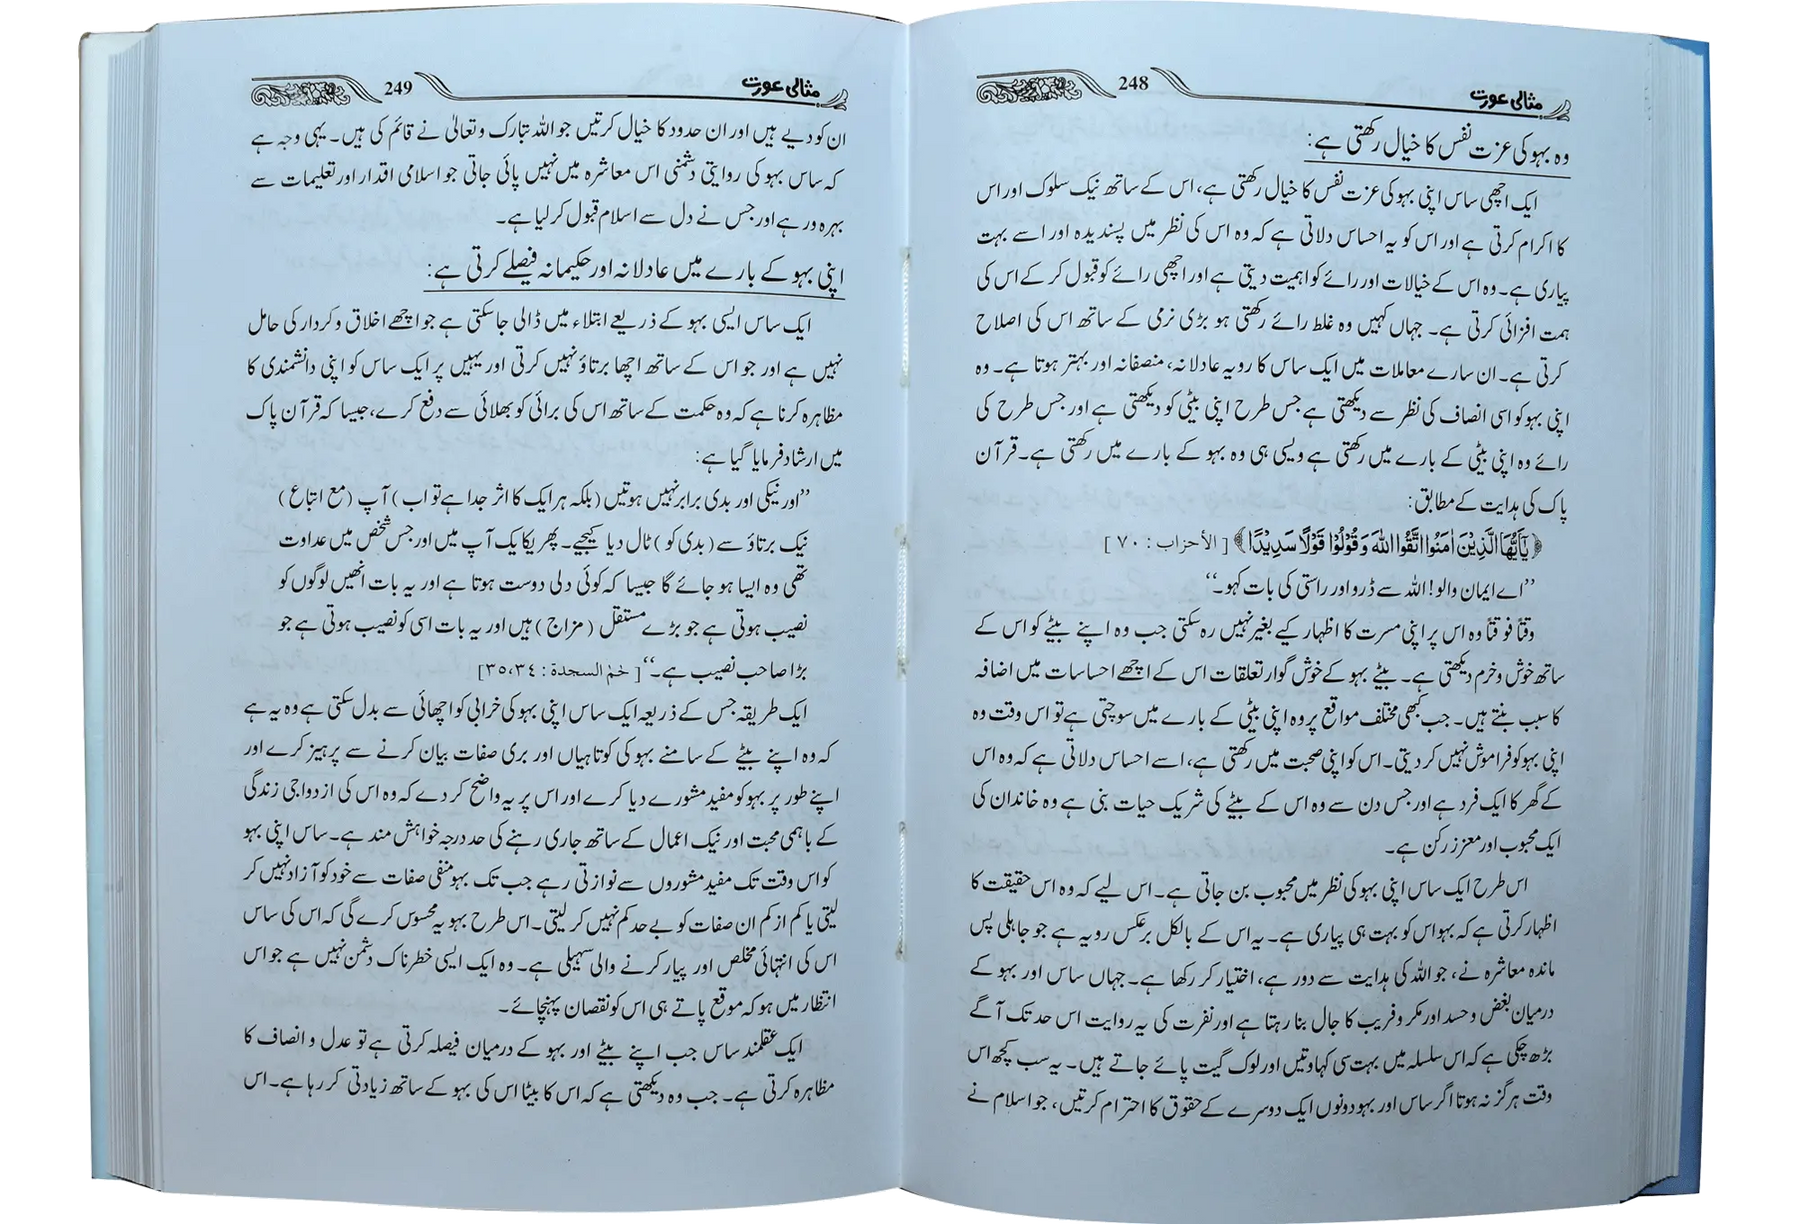 مثالی عورت 248
وہ بہو کی عزت نفس کا خیال رکھتی ہے:
ایک اچھی ساس اپنی بہو کی عزت نفس کا خیال رکھتی ہے، اس کے ساتھ نیک سلوک اور اس
کا اکرام کرتی ہے اور اس کو یہ احساس دلاتی ہے کہ وہ اس کی نظر میں پسندیدہ اور اسے بہت
پیاری ہے۔ وہ اس کے خیالات اور رائے کو اہمیت دیتی ہے اور اچھی رائے کو قبول کر کے اس کی
ہمت افزائی کرتی ہے۔ جہاں کہیں وہ غلط رائے رکھتی ہو بڑی نرمی کے ساتھ اس کی اصلاح
کرتی ہے۔ ان سارے معاملات میں ایک ساس کا رویہ عادلانہ، منصفانہ اور بہتر ہوتا ہے۔ وہ
اپنی بہو کو اسی انصاف کی نظر سے دیکھتی ہے جس طرح اپنی بیٹی کو دیکھتی ہے اور جس طرح کی
رائے وہ اپنی بیٹی کے بارے میں رکھتی ہے ویسی ہی وہ بہو کے بارے میں رکھتی ہے۔ قرآن
پاک کی ہدایت کے مطابق:
﴿يٰٓاَيُّهَا الَّذِيْنَ اٰمَنُوا اتَّقُوا اللّٰهَ وَقُوْلُوْا قَوْلًا سَدِيْدًا﴾ [الأحزاب: ۷۰]
’’اے ایمان والو! اللہ سے ڈرو اور راستی کی بات کہو۔‘‘
وقتاً فوقتاً وہ اس پر اپنی مسرت کا اظہار کیے بغیر نہیں رہ سکتی جب وہ اپنے بیٹے کو اس کے
ساتھ خوش و خرم دیکھتی ہے۔ بیٹے بہو کے خوش گوار تعلقات اس کے اچھے احساسات میں اضافہ
کا سبب بنتے ہیں۔ جب کبھی مختلف مواقع پر وہ اپنی بیٹی کے بارے میں سوچتی ہے تو اس وقت وہ
اپنی بہو کو فراموش نہیں کر دیتی۔ اس کو اپنی صحبت میں رکھتی ہے، اسے احساس دلاتی ہے کہ وہ اس
کے گھر کا ایک فرد ہے اور جس دن سے وہ اس کے بیٹے کی شریک حیات بنی ہے وہ خاندان کی
ایک محبوب اور معزز رکن ہے۔
اس طرح ایک ساس اپنی بہو کی نظر میں محبوب بن جاتی ہے۔ اس لیے کہ وہ اس حقیقت کا
اظہار کرتی ہے کہ بہو اس کو بہت ہی پیاری ہے۔ یہ اس کے بالکل برعکس رویہ ہے جو جاہلی پس
ماندہ معاشرہ نے، جو اللہ کی ہدایت سے دور ہے، اختیار کر رکھا ہے۔ جہاں ساس اور بہو کے
درمیان بغض و حسد اور مکر و فریب کا جال بنا رہتا ہے اور نفرت کی یہ روایت اس حد تک آگے
بڑھ چکی ہے کہ اس سلسلہ میں بہت سی کہاوتیں اور لوک گیت پائے جاتے ہیں۔ یہ سب کچھ اس
وقت ہرگز نہ ہوتا اگر ساس اور بہو دونوں ایک دوسرے کے حقوق کا احترام کرتیں، جو اسلام نے
مثالی عورت 249
ان کو دیے ہیں اور ان حدود کا خیال کرتیں جو اللہ تبارک و تعالیٰ نے قائم کی ہیں۔ یہی وجہ ہے
کہ ساس بہو کی روایتی دشمنی اس معاشرہ میں نہیں پائی جاتی جو اسلامی اقدار اور تعلیمات سے
بہرہ ور ہے اور جس نے دل سے اسلام قبول کر لیا ہے۔
اپنی بہو کے بارے میں عادلانہ اور حکیمانہ فیصلے کرتی ہے:
ایک ساس ایسی بہو کے ذریعے ابتلاء میں ڈالی جا سکتی ہے جو اچھے اخلاق و کردار کی حامل
نہیں ہے اور جو اس کے ساتھ اچھا برتاؤ نہیں کرتی اور یہیں پر ایک ساس کو اپنی دانشمندی کا
مظاہرہ کرنا ہے کہ وہ حکمت کے ساتھ اس کی برائی کو بھلائی سے دفع کرے، جیسا کہ قرآن پاک
میں ارشاد فرمایا گیا ہے:
’’اور نیکی اور بدی برابر نہیں ہوتیں (بلکہ ہر ایک کا اثر جدا ہے تو اب) آپ (مع اتباع)
نیک برتاؤ سے (بدی کو) ٹال دیا کیجیے۔ پھر یکایک آپ میں اور جس شخص میں عداوت
تھی وہ ایسا ہو جائے گا جیسا کہ کوئی دلی دوست ہوتا ہے اور یہ بات انھیں لوگوں کو
نصیب ہوتی ہے جو بڑے مستقل (مزاج) ہیں اور یہ بات اسی کو نصیب ہوتی ہے جو
بڑا صاحب نصیب ہے۔‘‘ [حٰمٓ السجدة: ۳۵،۳٤]
ایک طریقہ جس کے ذریعہ ایک ساس اپنی بہو کی خرابی کو اچھائی سے بدل سکتی ہے وہ یہ ہے
کہ وہ اپنے بیٹے کے سامنے بہو کی کوتاہیاں اور بری صفات بیان کرنے سے پرہیز کرے اور
اپنے طور پر بہو کو مفید مشورے دیا کرے اور اس پر یہ واضح کر دے کہ وہ اس کی ازدواجی زندگی
کے باہمی محبت اور نیک اعمال کے ساتھ جاری رہنے کی حد درجہ خواہش مند ہے۔ ساس اپنی بہو
کو اس وقت تک مفید مشوروں سے نوازتی رہے جب تک بہو منفی صفات سے خود کو آزاد نہیں کر
لیتی یا کم از کم ان صفات کو بے حد کم نہیں کر لیتی۔ اس طرح بہو یہ محسوس کرے گی کہ اس کی ساس
اس کی انتہائی مخلص اور پیار کرنے والی سہیلی ہے۔ وہ ایک ایسی خطرناک دشمن نہیں ہے جو اس
انتظار میں ہو کہ موقع پاتے ہی اس کو نقصان پہنچائے۔
ایک عقلمند ساس جب اپنے بیٹے اور بہو کے درمیان فیصلہ کرتی ہے تو عدل و انصاف کا
مظاہرہ کرتی ہے۔ جب وہ دیکھتی ہے کہ اس کا بیٹا اس کی بہو کے ساتھ زیادتی کر رہا ہے۔ اس